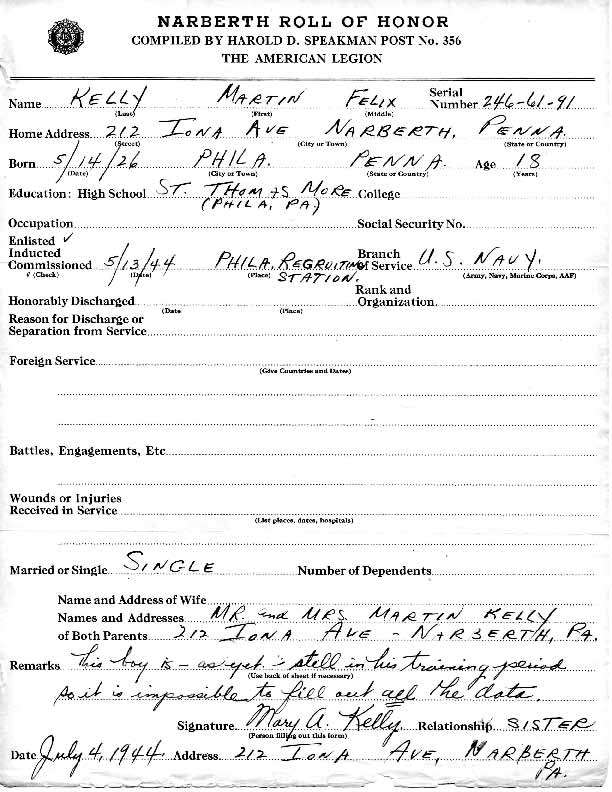 NARBERTH ROLL OF HONOR
COMPILED BY HAROLD D. SPEAKMAN POST No. 356
THE AMERICAN LEGION
Name KELLY MARTIN FELIX Serial Number 246-61-91
(Last) (First) (Middle)
Home Address 212 IONA AVE NARBERTH, PENNA.
(Street) (City or Town) (State or Country)
Born 5/14/26 PHILA. PENNA. Age 18
(Date) (City or Town) (State or Country) (Years)
Education: High School ST. THOMAS MORE College
(PHILA, PA)
Occupation Social Security No.
Enlisted ✓
Inducted
Commissioned 5/13/44 PHILA. RECRUITING STATION. Branch of Service U.S. NAVY.
✓ (Check) (Date) (Place) (Army, Navy, Marine Corps, AAF)
Honorably Discharged Rank and Organization
(Date (Place)
Reason for Discharge or
Separation from Service
Foreign Service
(Give Countries and Dates)
Battles, Engagements, Etc
Wounds or Injuries
Received in Service
(List places, dates, hospitals)
Married or Single SINGLE Number of Dependents
Name and Address of Wife
Names and Addresses MR. and MRS. MARTIN KELLY
of Both Parents 212 IONA AVE - NARBERTH, PA.
Remarks This boy is - as yet - still in his training period
(Use back of sheet if necessary)
so it is impossible to fill out all the data.
Signature Mary A. Kelly Relationship SISTER
(Person filling out this form)
Date July 4, 1944 Address 212 IONA AVE, NARBERTH
PA.